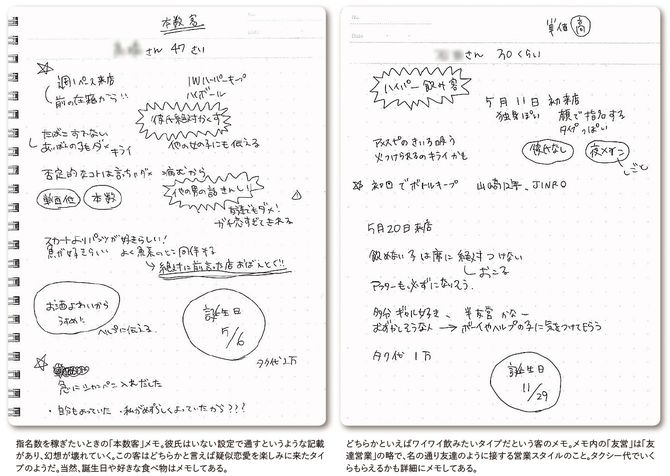 本数客
さん 47さい
週1ペース来店
前の在籍から!!
IWハーパーキープ
ハイボール
彼氏絶対かくす
他の女の子にも伝える
たばこすてない
キライ
否定的なコトは言っちゃダメ 病むから
単価低
本数
他の男の話きんし!
友達でもダメ!
スカートよりパンツが好きらしい!
魚が好きらしい よく魚系のとこ同伴する
→絶対に前言った店おぼえとく!!
お酒よわいから
うすめ!
ヘルプに伝える
誕生日
5/6
タク代1万
急にシャンパン入れだした
・自分もよっていた ・私がめずらしくよっていたから???
指名数を稼ぎたいときの「本数客」メモ。彼氏はいない設定で通すというような記載
があり、幻想が壊れていく。この客はどちらかと言えば疑似恋愛を楽しみに来たタイ
プのようだ。当然、誕生日や好きな食べ物はメモしてある。
No.
Date
単価高
さん 30くらい
ハイパー飲み客
5月11日 初来店
独身ぽい 顔で指名する
タイプっぽい
アメスピのきいろ吸う
火つけられるのキライかも
彼氏なし
夜メイン
しごと
☆初回でボトルキープ 山崎12年、JINRO
5月20日来店
飲めない子は席に絶対つけない
おこる
アフターも必ずになりそう。
多分ギャル好き、半友営かな〜
むずかしそうな人→ボーイやヘルプの子に気をつけてもらう
タク代 1万
誕生日
11/29
どちらかといえばワイワイ飲みたいタイプだという客のメモ。メモ内の「友営」は「友
達営業」の略で、名の通り友達のように接する営業スタイルのこと。タクシー代でいく
らもらえるかも詳細にメモしてある。